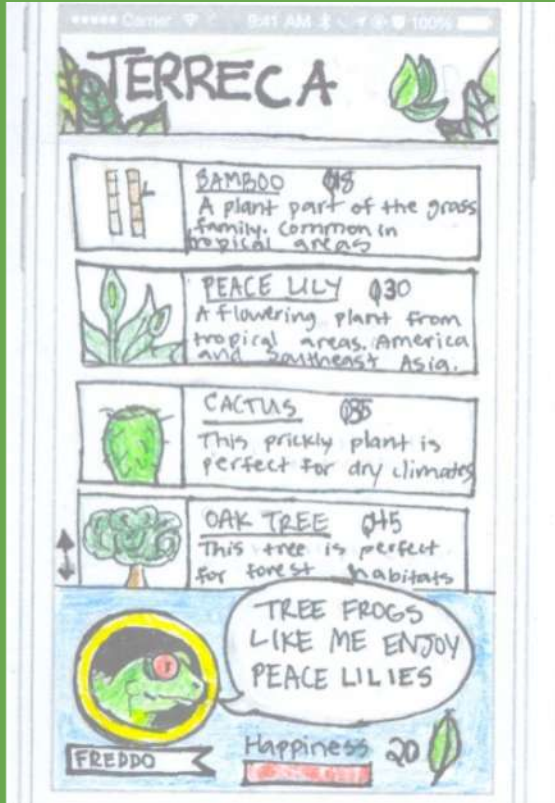 Carrier 9:41 AM 100%
TERRECA
BAMBOO 18
A plant part of the grass
family. Common in
tropical areas
PEACE LILY 30
A flowering plant from
tropical areas. America
and Southeast Asia.
CACTUS 35
This prickly plant is
perfect for dry climates
OAK TREE 45
This tree is perfect
for forest habitats
TREE FROGS
LIKE ME ENJOY
PEACE LILIES
FREDDO
Happiness 20